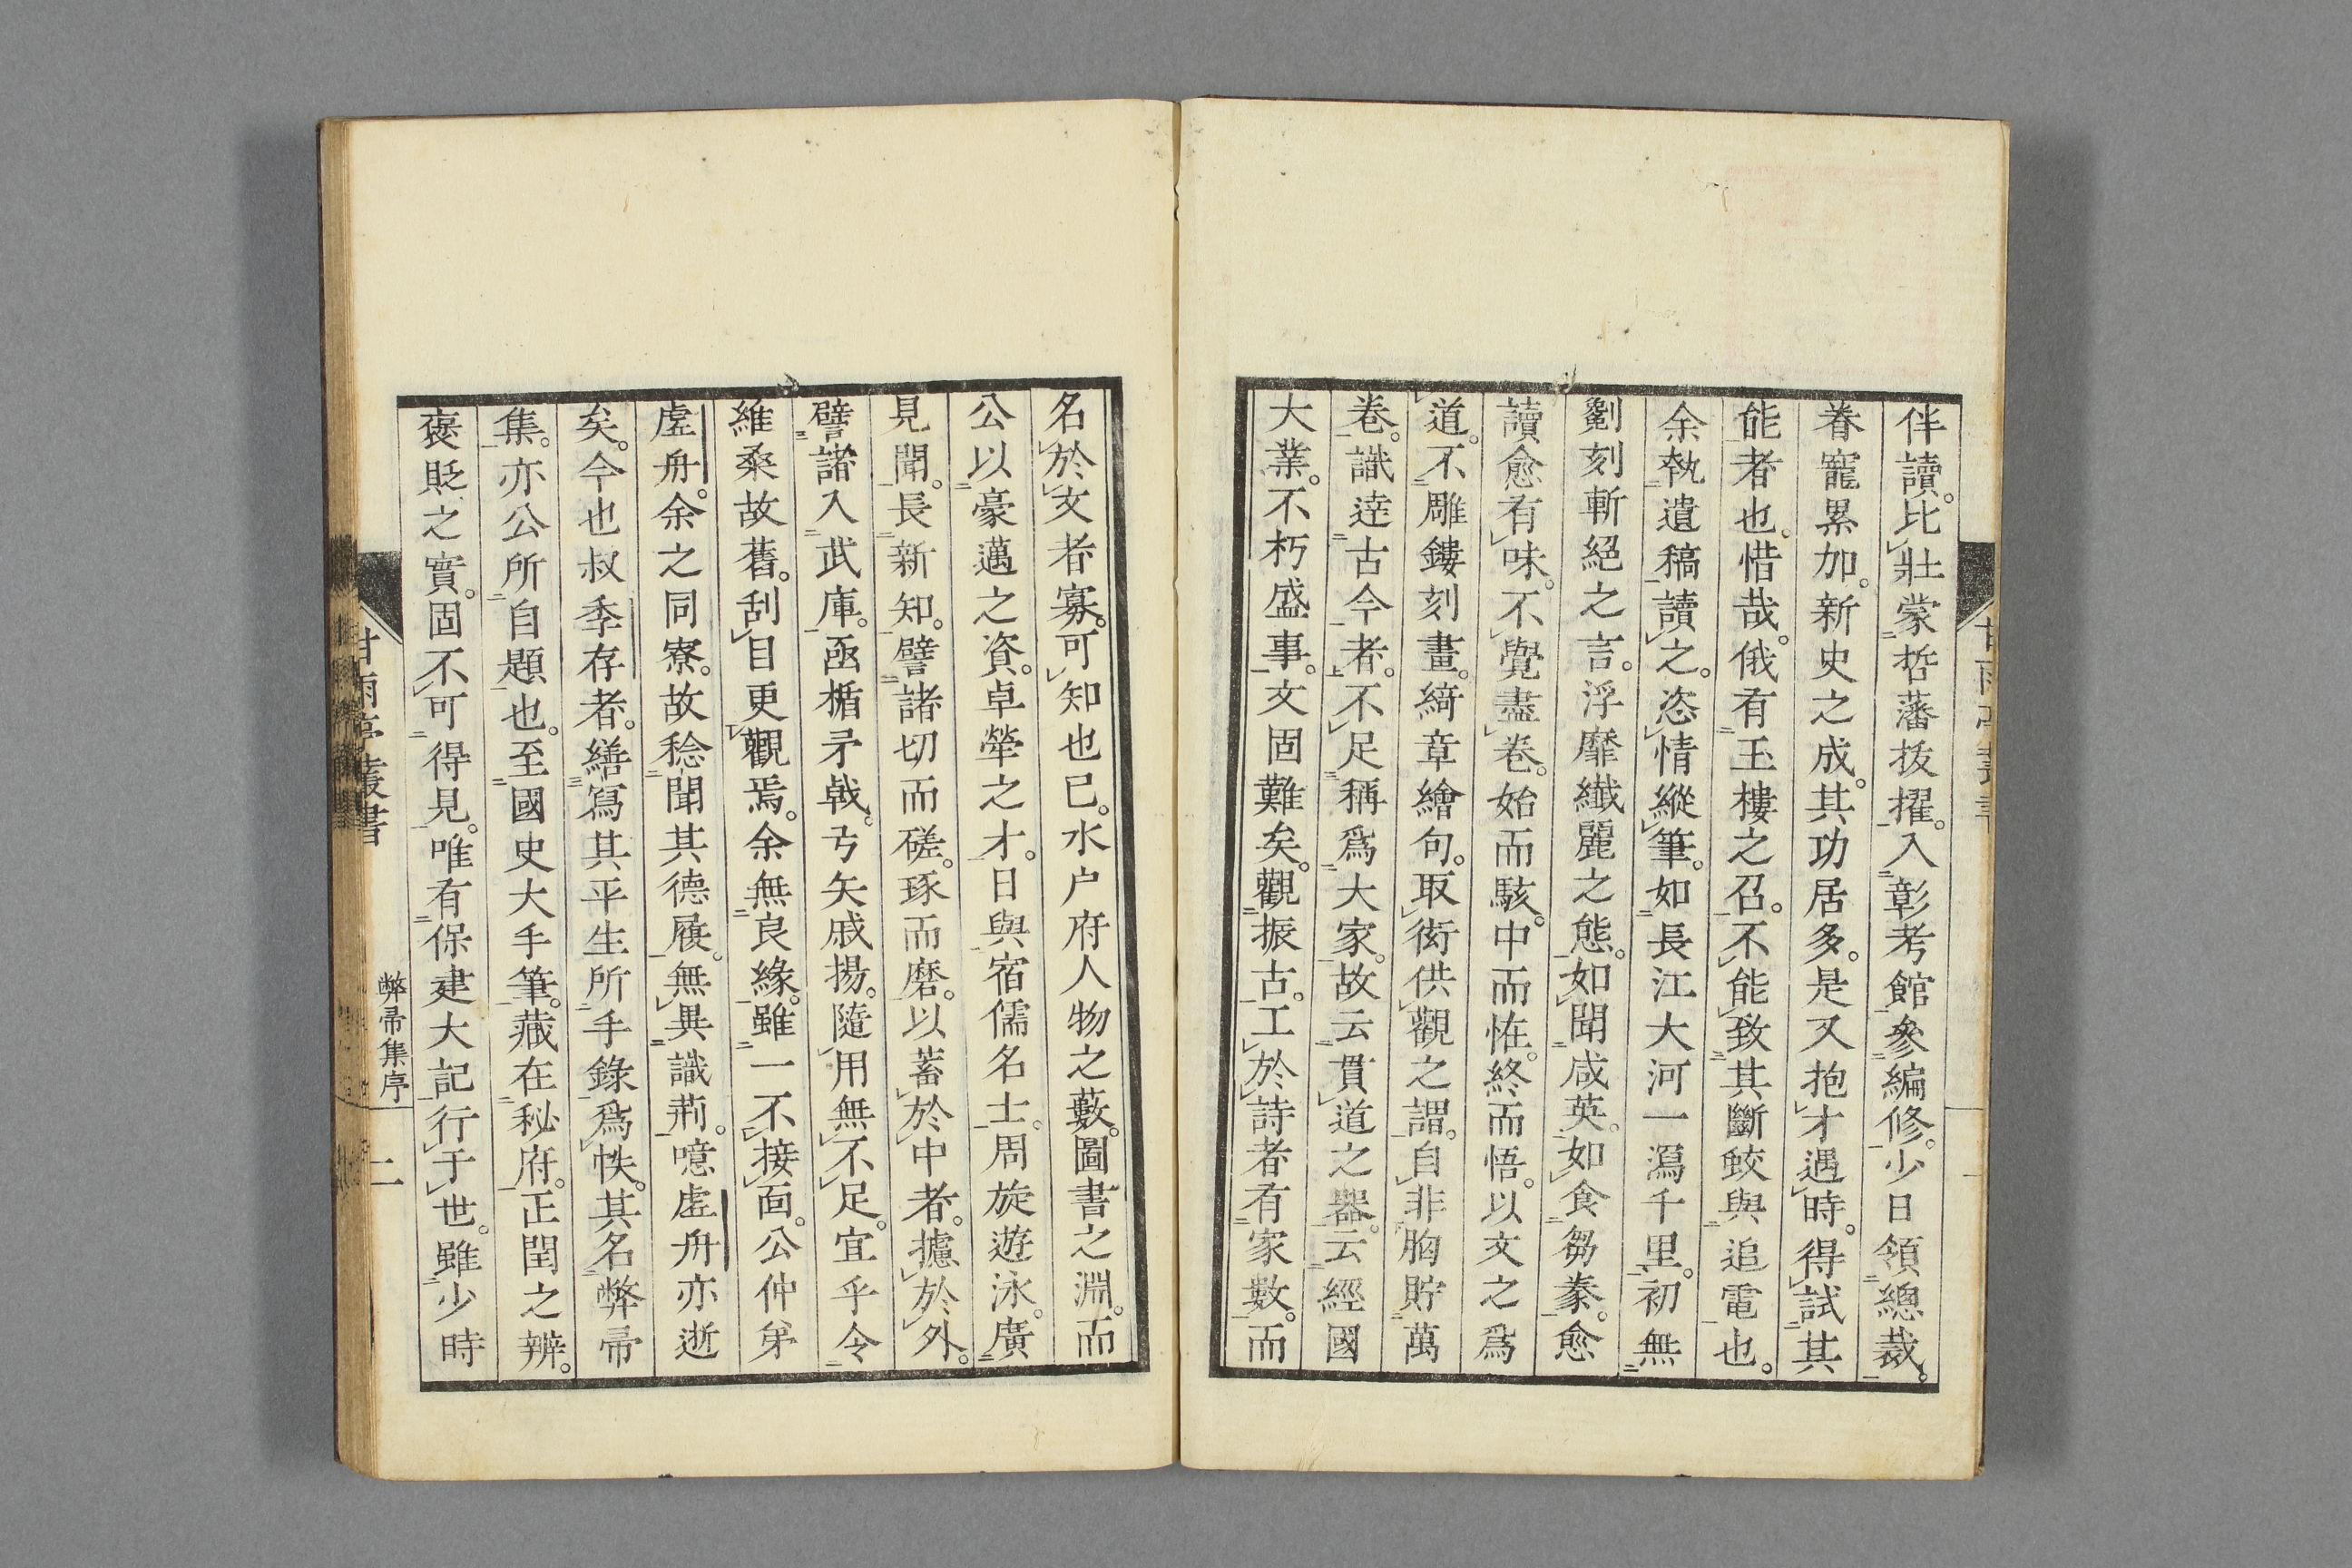 伴讀。比壯蒙哲藩拔擢。入彰考館參編修。少日領總裁。
眷寵累加。新史之成。其功居多。是又抱才遇時。得試其
能者也。惜哉。俄有玉樓之召。不能致其斷蛟與追電也。
余執遺稿讀之。恣情縱筆。如長江大河一瀉千里。初無
劉刻斬絕之言。浮靡纖麗之態。如聞咸英。如食芻豢。愈
讀愈有味。不覺盡卷。始而駭。中而恠。終而悟。以文之爲
道。不雕鏤刻畫。綺章繪句。取衒供觀之謂。自非胸貯萬
卷。識達古今者。不足稱爲大家。故云貫道之器。云經國
大業。不朽盛事。文固難矣。觀振古。工於詩者有家數。而
名於文者寡。可知也已。水户府人物之藪。圖書之淵。而
公以豪邁之資。卓犖之才。日與宿儒名士。周旋遊泳。廣
見聞。長新知。譬諸切而磋。琢而磨。以蓄於中者。攄於外。
譬諸入武庫。凾楯矛戟。弓矢戚揚。隨用無不足。宜乎令
維桑故舊。刮目更觀焉。余無良緣。雖一不接面。公仲弟
虛舟。余之同寮。故稔聞其德履。無異識荊。噫虛舟亦逝
矣。今也叔季存者。繕寫其平生所手錄爲帙。其名弊帚
集。亦公所自題也。至國史大手筆。藏在秘府。正閏之辨。
褒貶之實。固不可得見。唯有保建大記行于世。雖少時
甘雨亭叢書
弊帚集序
二